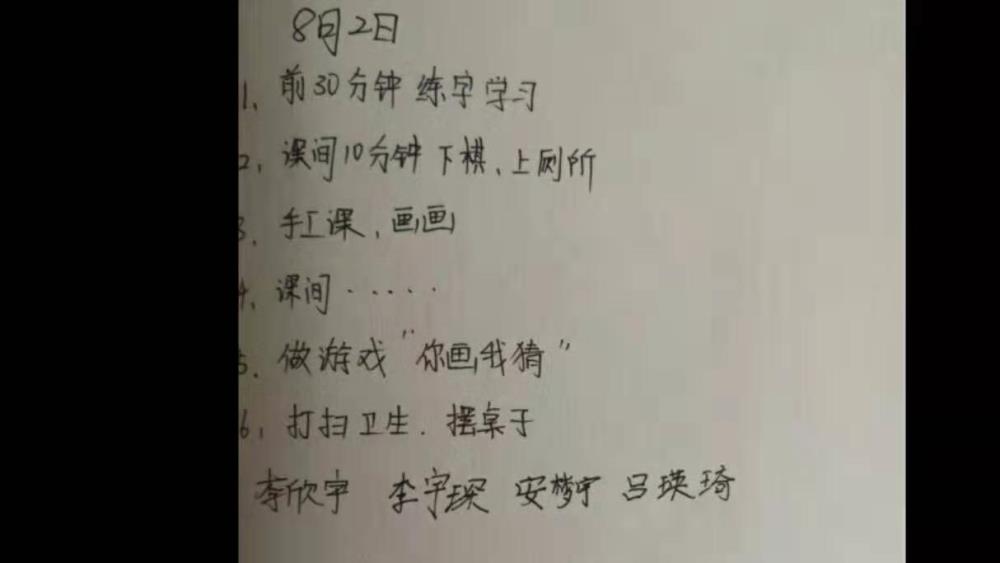 8月2日
1、前30分钟 练字学习
2、课间10分钟 下棋、上厕所
3、手工课、画画
4、课间·····
5.做游戏"你画我猜"
6、打扫卫生.摆桌子
李欣宇 李宇琛 安梦宁 吕瑛琦